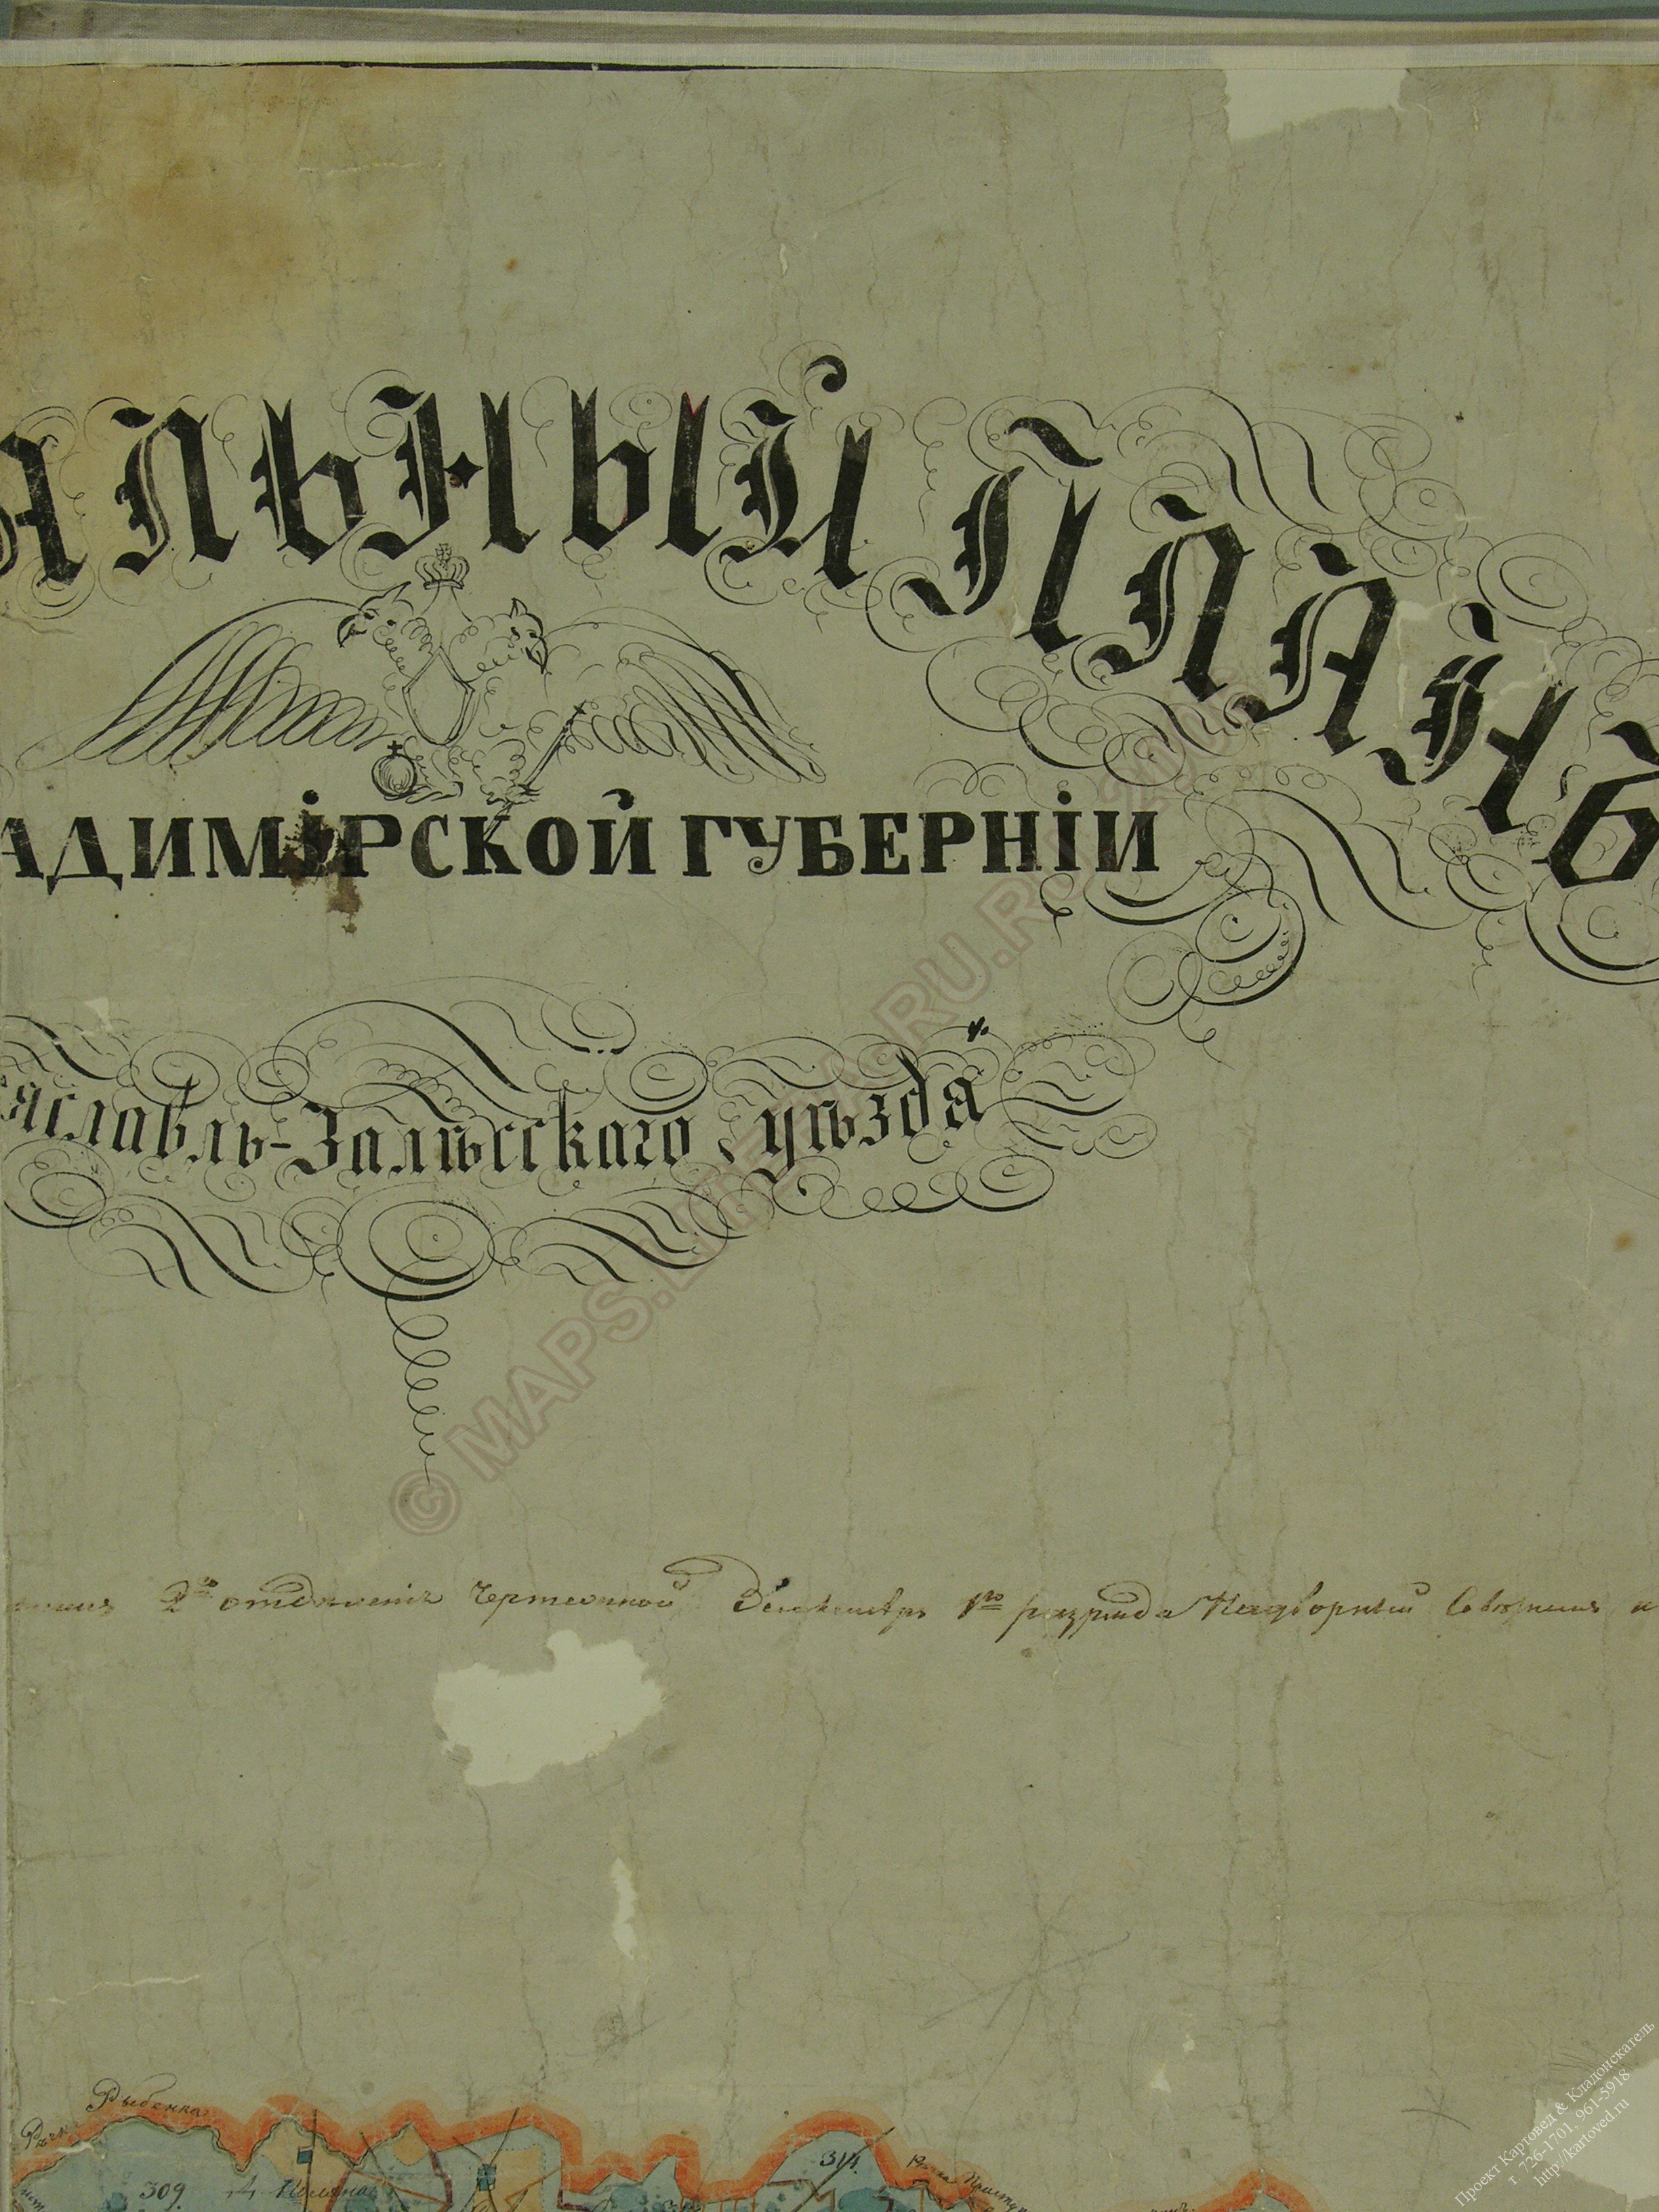 АЛЬНЫЙ ПЛАНЪ
АДИМІРСКОЙ ГУБЕРНІИ
яславль-Залѣсскаго уѣзда
2го отделенія Чертежной 1го разряда Надворный Советникъ
Рыбенка
Речк
309
314
Речка
© MAPS.LITERA.RU
Проект Картовед & Кладоискатель
т. 726-1701, 961-5918
http://kartoved.ru